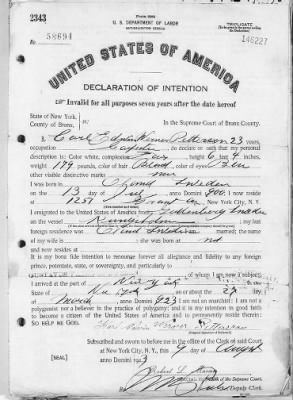 2343
Form 2202
U. S. DEPARTMENT OF LABOR
NATURALIZATION SERVICE
TRIPLICATE
No. 58694
146227
UNITED STATES OF AMERICA
DECLARATION OF INTENTION
Invalid for all purposes seven years after the date hereof
State of New York,
County of Bronx,
In the Supreme Court of Bronx County.
I, Carl Edwin Werner Petterson, aged 23 years,
occupation Carpenter, do declare on oath that my personal
description is: Color white, complexion Fair, height 6 feet 4 inches,
weight 179 pounds, color of hair Blond, color of eyes Blue
other visible distinctive marks none
I was born in Sweden
on the 13 day of July, anno Domini; I now reside
at 1251 Grant av, New York City, N. Y.
I emigrated to the United States of America from Gothenburg Sweden
on the vessel Kungsholm; my last
foreign residence was Sweden; I am not married; the name of
my wife is; she was born at not
and now resides at
It is my bona fide intention to renounce forever all allegiance and fidelity to any foreign
prince, potentate, state, or sovereignty, and particularly to
of whom I am now a subject;
I arrived at the port of New York, in the
State of New York, on or about the 27 day
of March, anno Domini 1923; I am not an anarchist; I am not a
polygamist nor a believer in the practice of polygamy; and it is my intention in good faith
to become a citizen of the United States of America and to permanently reside therein:
SO HELP ME GOD.
Carl Edwin Werner Petterson
Subscribed and sworn to before me in the office of the Clerk of said Court
at New York City, N. Y., this 9 day of August
anno Domini 1923
[SEAL]
Clerk of the Supreme Court.